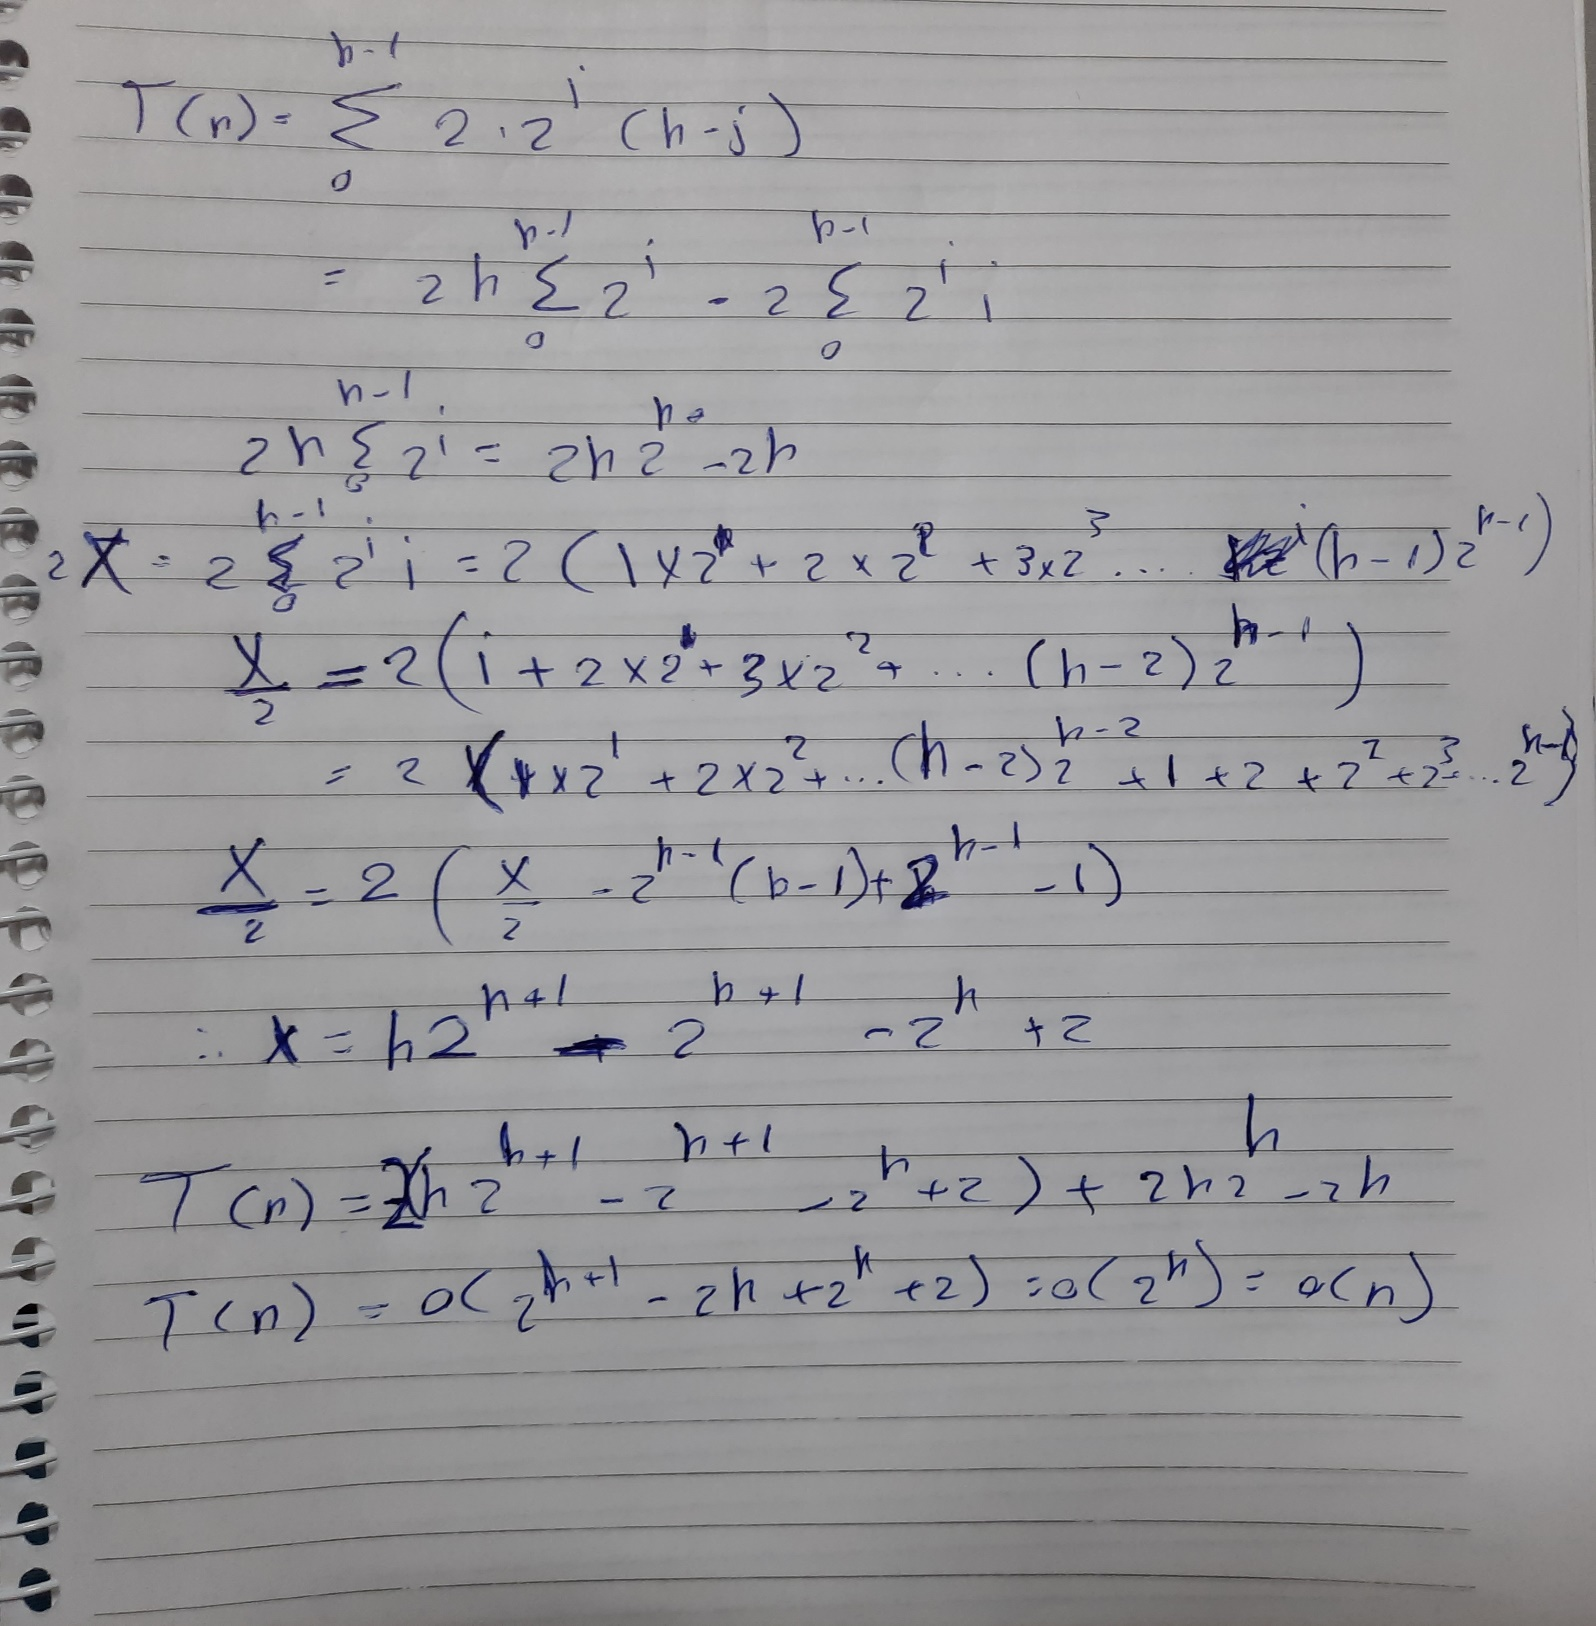 T(n) = Σ_0^{h-1} 2·2^i (h-j)
= 2h Σ_0^{h-1} 2^i - 2 Σ_0^{h-1} 2^i i
2h Σ_0^{h-1} 2^i = 2h 2^h - 2h
2X = 2 Σ_0^{h-1} 2^i i = 2 (1×2^1 + 2×2^2 + 3×2^3 .... (h-1) 2^{h-1})
X/2 = 2 (1 + 2×2^1 + 3×2^2 + ... (h-2) 2^{h-1})
= 2 (1×2^1 + 2×2^2 + ... (h-2) 2^{h-2} + 1 + 2 + 2^2 + 2^3 + ... 2^{h-1})
X/2 = 2 (X/2 - 2^{h-1} (h-1) + 2^{h-1} - 1)
∴ X = h 2^{h+1} - 2^{h+1} - 2^h + 2
T(n) = 2(h 2^{h+1} - 2^{h+1} - 2^h + 2) + 2h 2^h - 2h
T(n) = O(2^{h+1} - 2h + 2^h + 2) = O(2^h) = O(n)